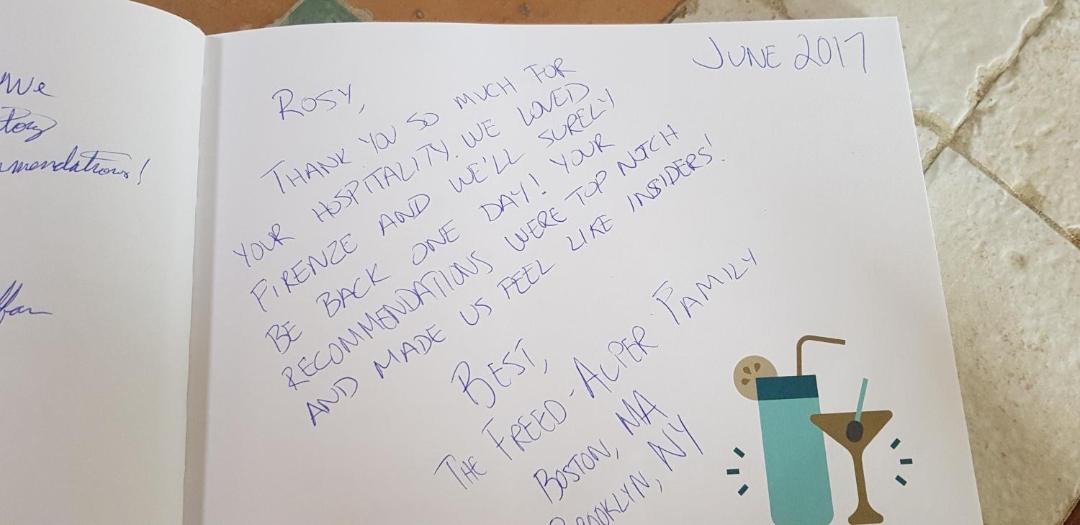 We
mendations!
JUNE 2017
ROSY,
THANK YOU SO MUCH FOR
YOUR HOSPITALITY. WE LOVED
FIRENZE AND WE'LL SURELY
BE BACK ONE DAY! YOUR
RECOMMENDATIONS WERE TOP NOTCH
AND MADE US FEEL LIKE INSIDERS!
BEST,
THE FREED-ALPER FAMILY
BOSTON, MA
BROOKLYN, NY